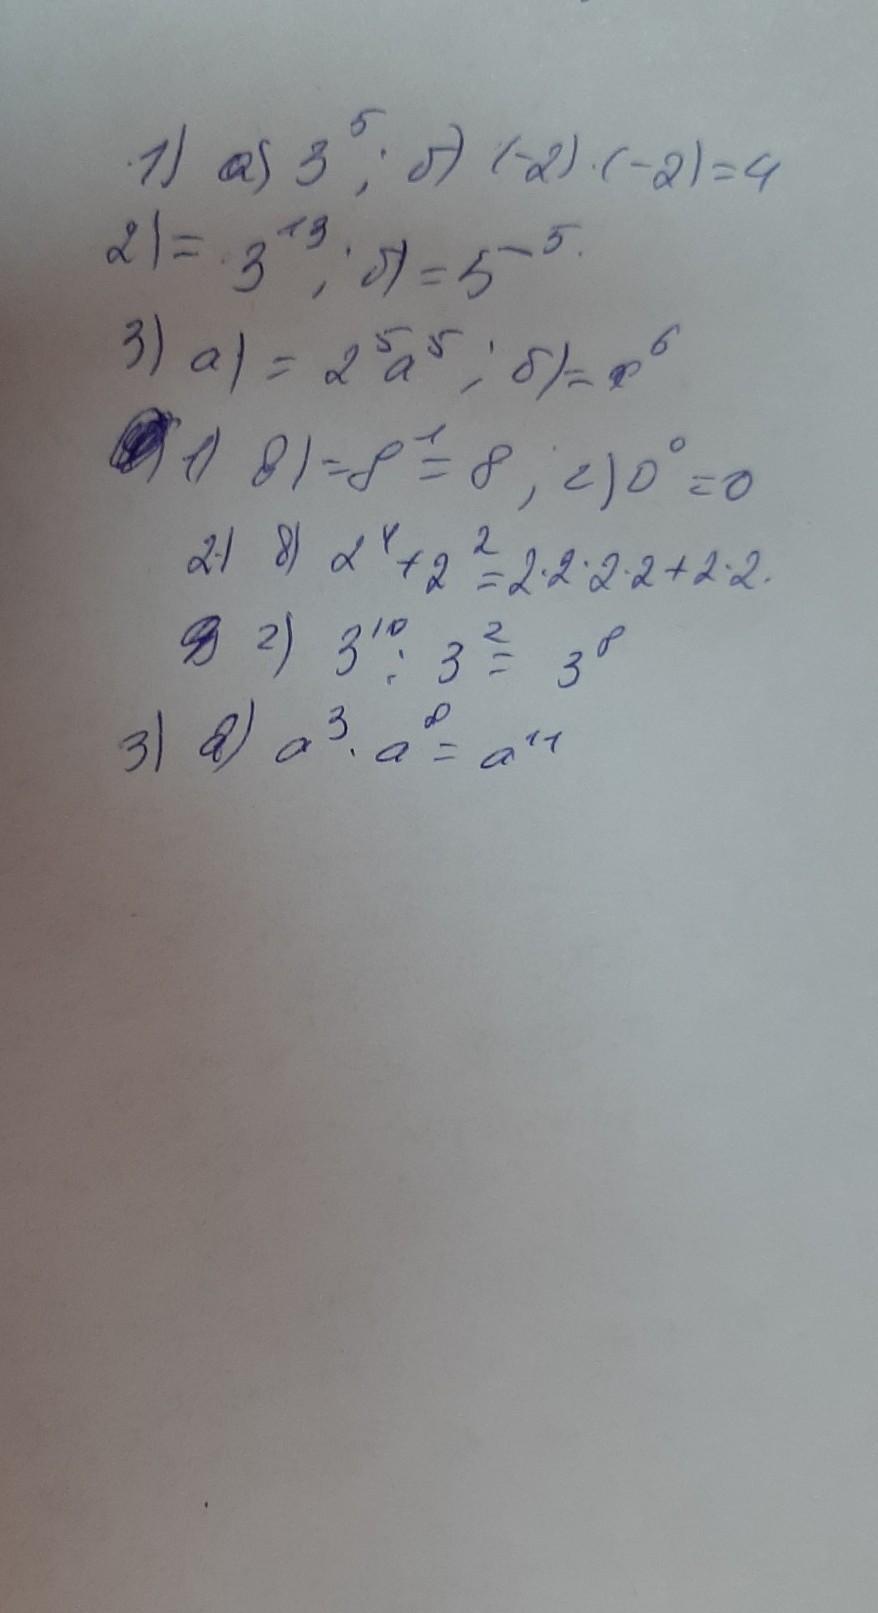 1) а) 3⁵; б) (-2)·(-2)=4
2) = 3¹³; б) = 5⁻⁵.
3) а) = 2⁵a⁵; б) = x⁶
1) в) = 8¹ = 8; г) 0⁰ = 0
2) в) 2⁴ + 2² = 2·2·2·2 + 2·2.
г) 3¹⁰ : 3² = 3⁸
3) a³ · a⁸ = a¹¹